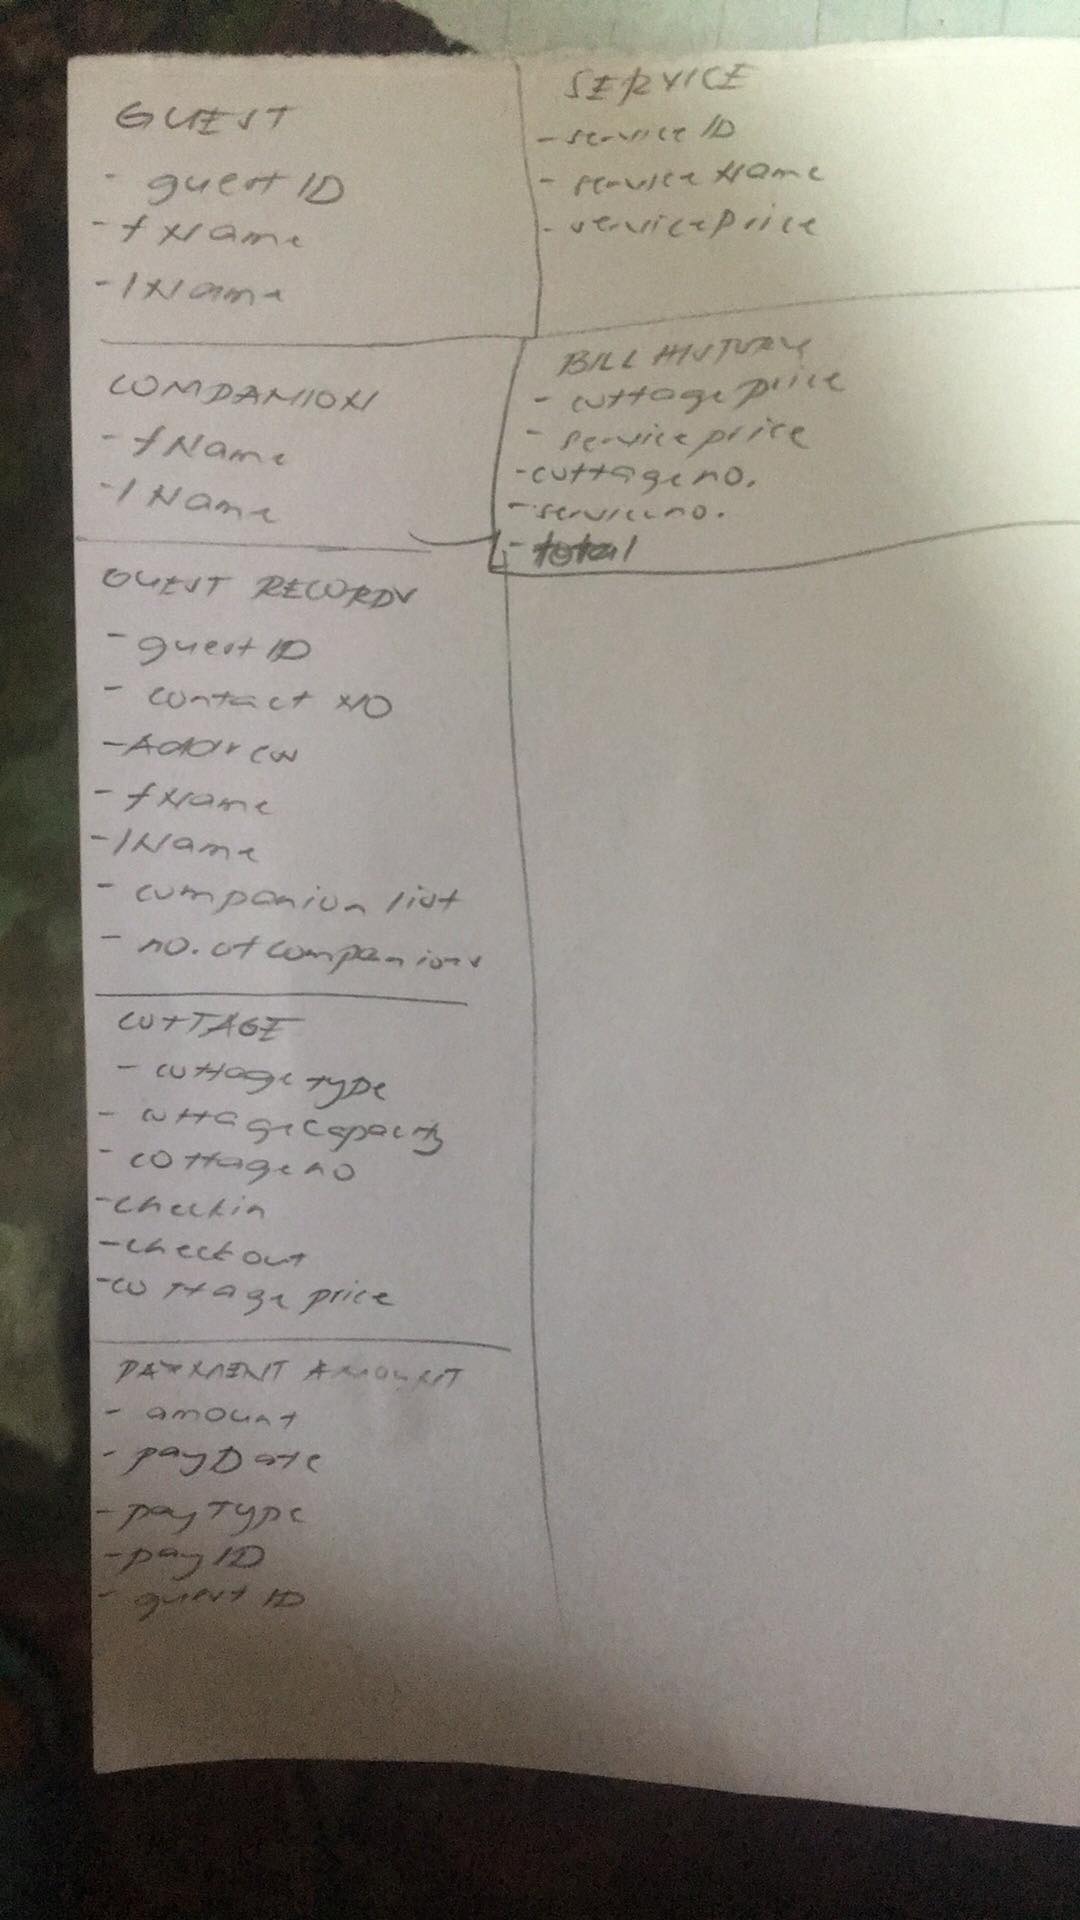 GUEST
- guest ID
- fName
- lName
COMPANION
- fName
- lName
GUEST RECORDS
- guest ID
- contact NO
- Address
- fName
- lName
- companion list
- no. of companions
COTTAGE
- cottage type
- cottage capacity
- cottage no
- checkin
- checkout
- cottage price
PAYMENT AMOUNT
- amount
- payDate
- payType
- pay ID
- guest ID
SERVICE
- service ID
- service Name
- service Price
BILL HISTORY
- cottage price
- service price
- cottage no.
- service no.
- total